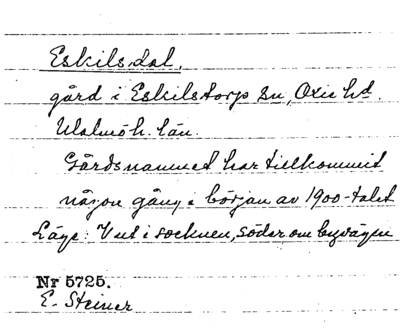 Eskilsdal,
gård i Eskilstorps sn, Oxie hd.
Malmöh. län.
Gårdsnamnet har tillkommit
någon gång i början av 1900-talet
Läge: V ut i socknen, söder om byvägen
Nr 5725.
E. Steiner